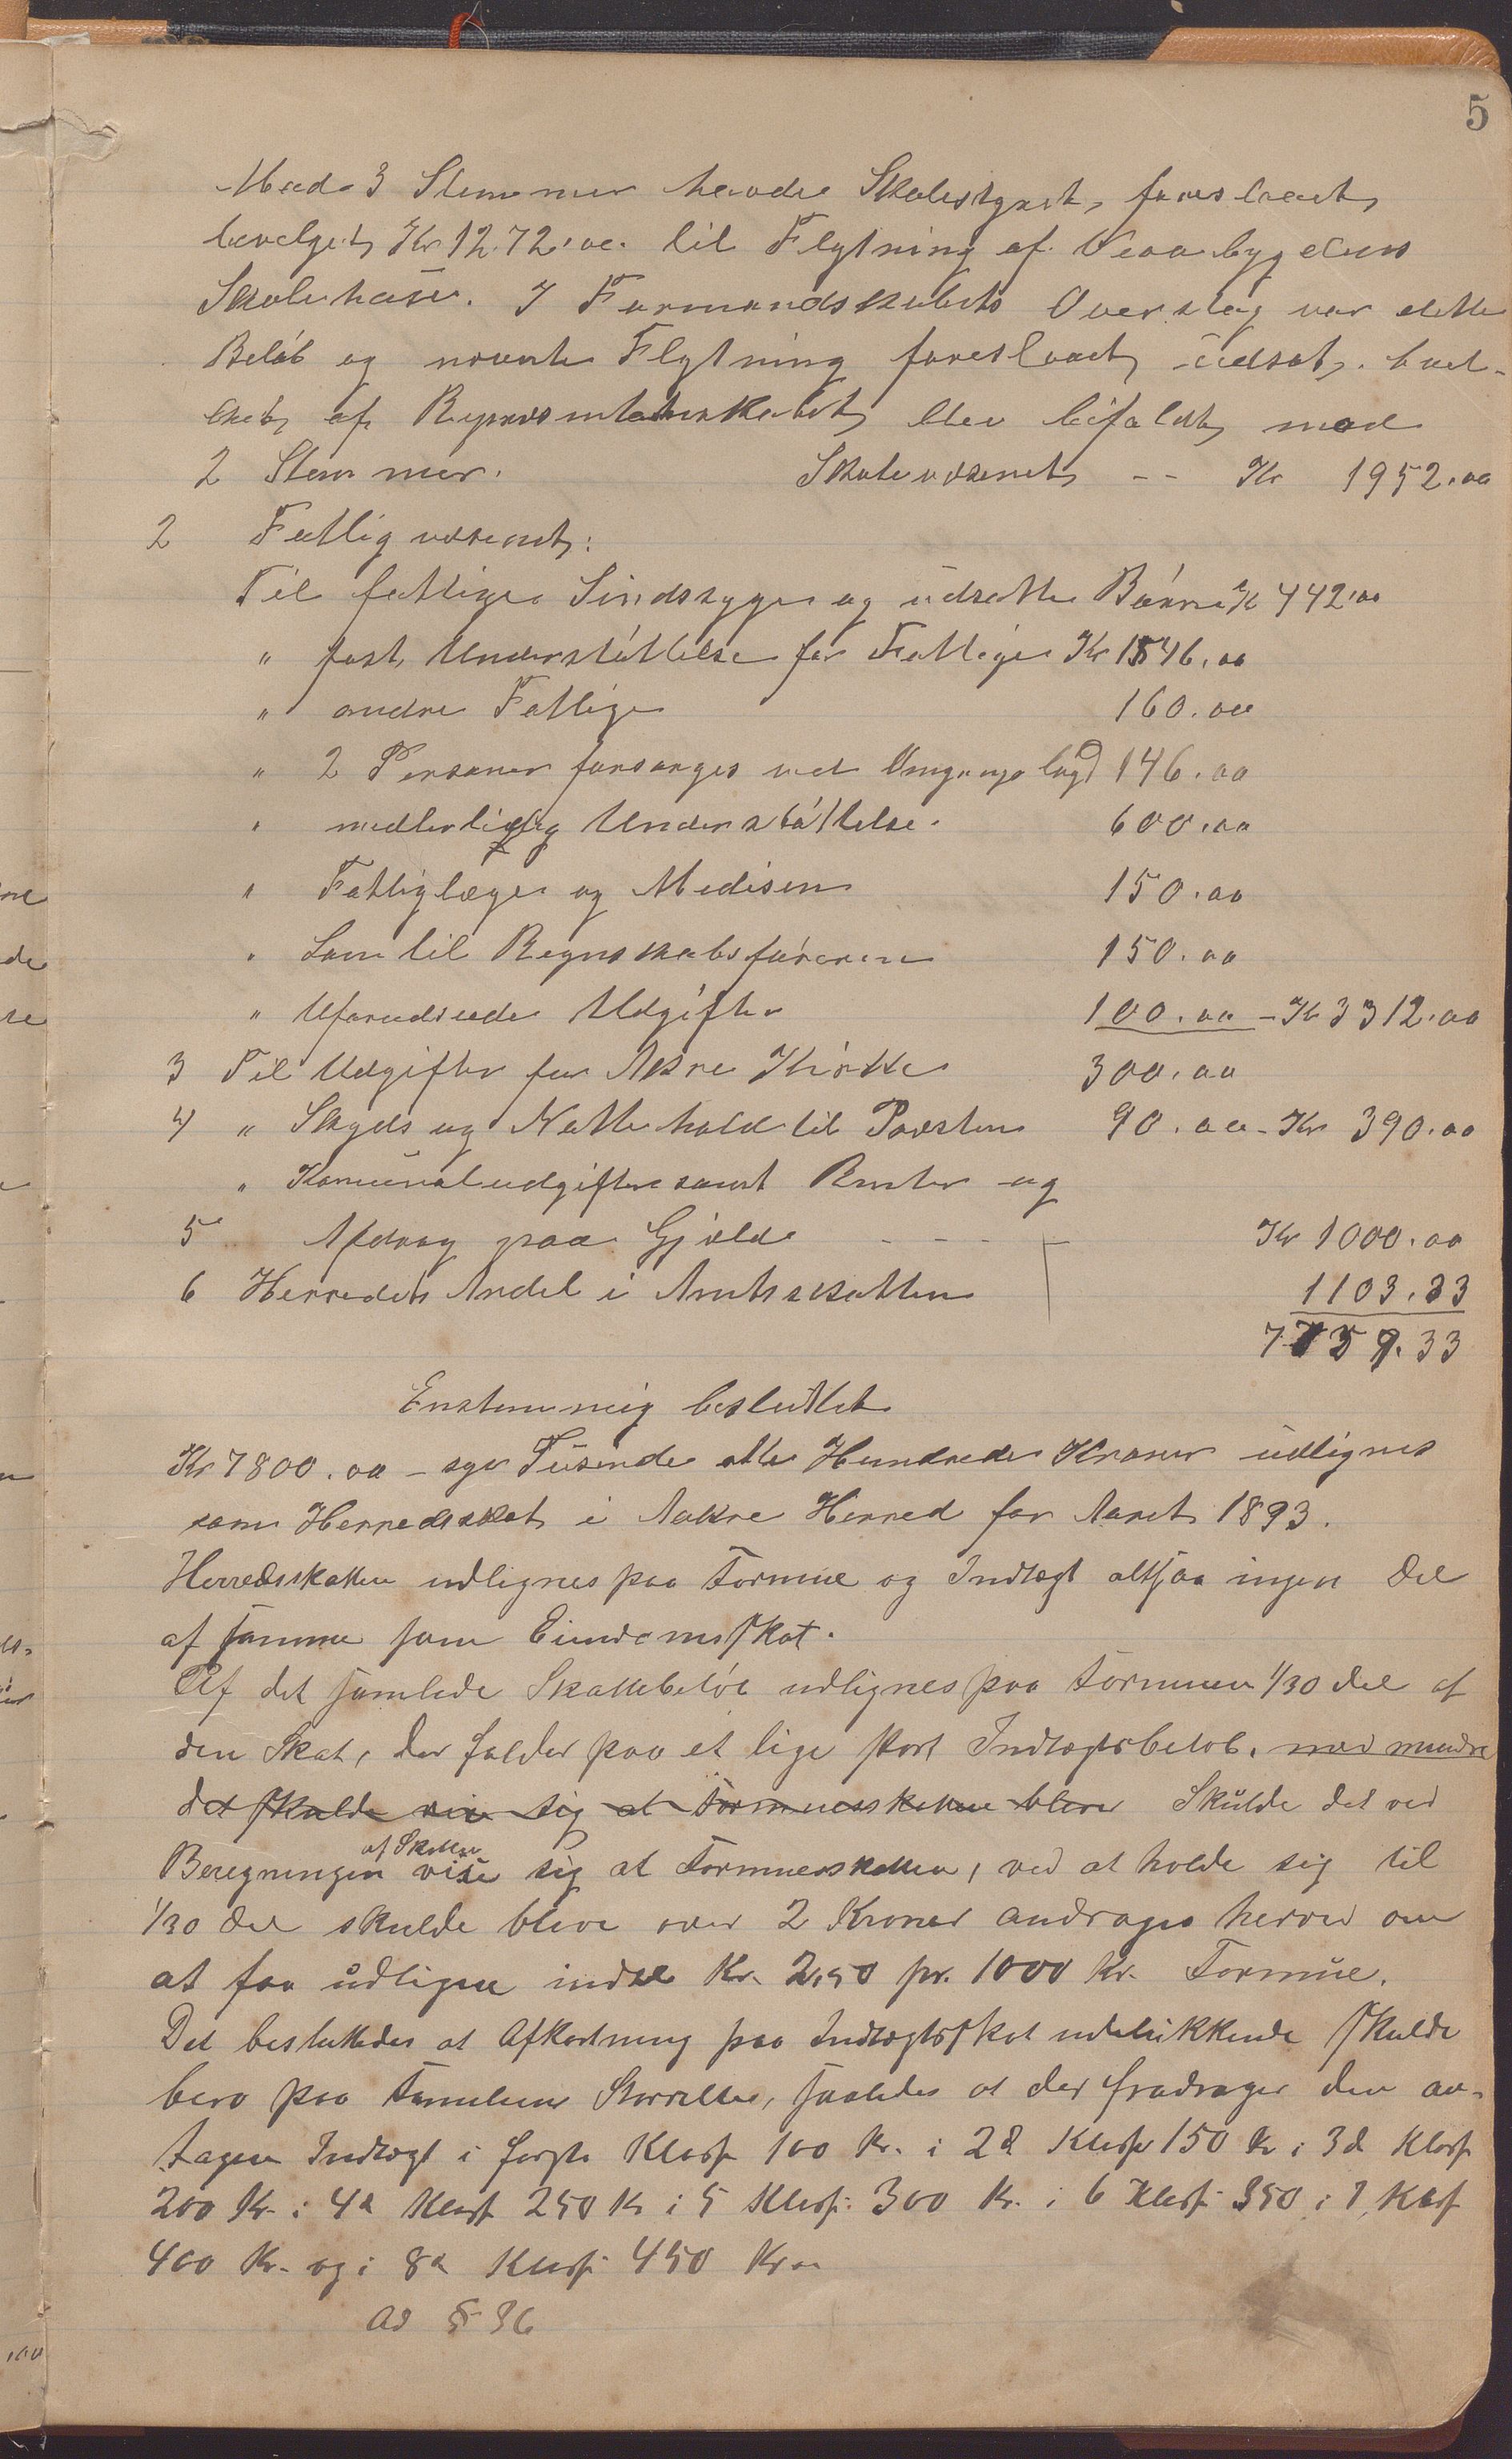 5
Med 3 Stemmer havde Skolestyret, foreslaaet,
bevelget, Kr 1272,oo. til Flytning af Veabygdens
Skolehuse. I Formandskabets Overslag var dette
Beløb og nævnte Flytning foreslaaet, udsat,
af Repræsentantskabet, blev bifaldt, med
2 Stemmer. Skolevæsenet, -- Kr 1952.oo
2 Fattigvæsenet:
Til fattige Sindssyge og udsatte Børn Kr 442,oo
" fast, Understøttelse for Fattige Kr 1546.oo
" andre Fattige 160.oo
" 2 Personer forsørges ved Omgangslægd 146.oo
" midlertidig Understøttelse. 600.oo
" Fattiglæge og Medisin 150.oo
" Løn til Regnskabsføreren 150.oo
" Uforudseede Udgifter 100.oo - Kr 3312.oo
3 Til Udgifter for Aakre Kirke 300.oo
4 " Skyds og Nattehold til Præsten 90.oo - Kr 390.oo
" Komunaludgifter samt Renter og
5 Afdrag paa Gjæld - - - - Kr 1000.oo
6 Herredets Andel i Amtsskatten 1103.33
7757.33
Enstemmig besluttet
Kr 7800.oo - syv Tusende otte Hundrede Kroner udlignes
som Herredsskat, i Aakre Herred for Aaret 1893.
Herredsskatten udlignes paa Formue og Indtægt altsaa ingen Del
af samme som Eiendomsskat.
Af det samlede Skattebeløb udlignes paa Formuen 1/30 del af
den Skat, der falder paa et lige stort Indtægtsbeløb, med mindre
det skulde vise sig at Formuesskatten blive Skulde det ved
Beregningen af Skatten vise sig at Formuesskatten, ved at holde sig til
1/30 del skulde blive over 2 Kroner andrages herved om
at faa udligne indtil Kr. 2,50 pr. 1000 Kr. Formue.
Det besluttedes at Afkortning paa Indtægtsskat udelukkende skulde
bero paa Familiens Størrelse, saaledes at der fradrages den an-
tagne Indtægt i første Klasse 100 Kr. i 2d Klasse 150 Kr i 3d Klasse
200 Kr. i 4d Klasse 250 Kr i 5 Klasse 300 Kr. i 6 Klasse 350 i 7 Klasse
400 Kr. og i 8d Klasse 450 Kr.
ad § 36